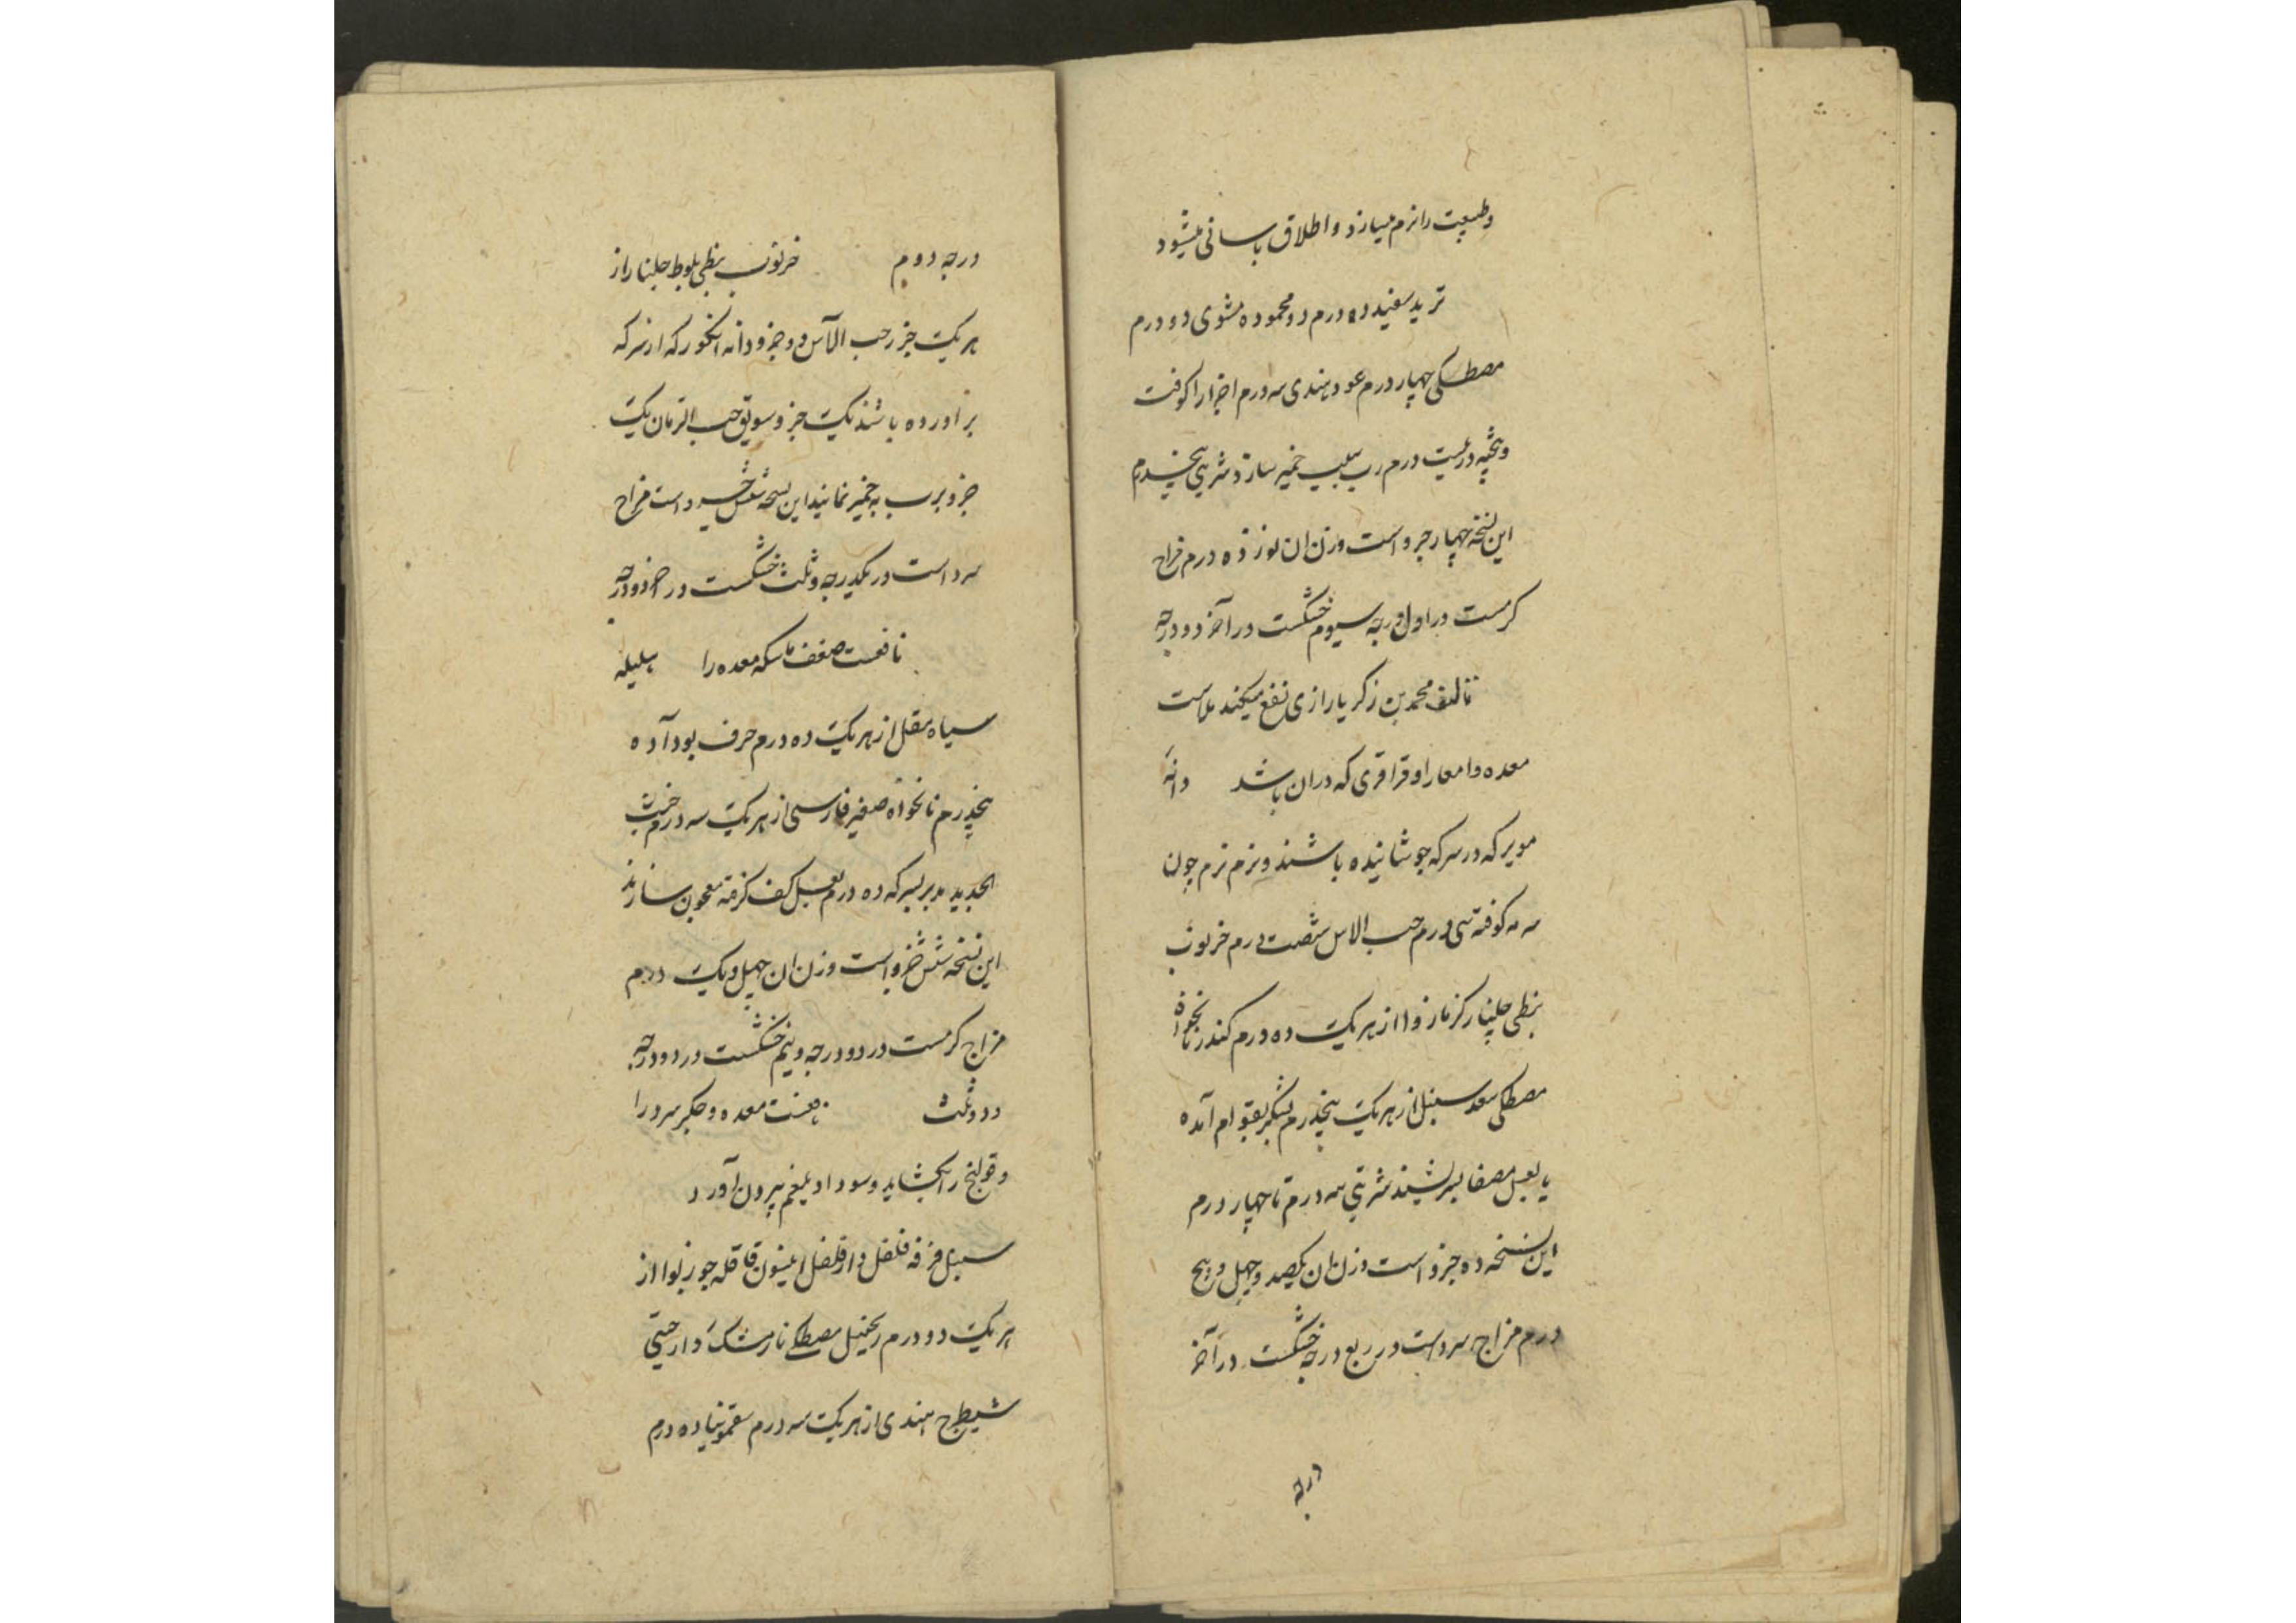 وطبیعت رانرم میسازد واطلاق باسانی میشود
تربد سفید ده درم دو محموده مشوی دو درم
مصطکی چهار درم عود هندی سه درم اجزا را کوفت
وبیخته درم رب سیب خمیر سازد شربتی پنجدرم
این نسخه چهار جزو است وزن ان نوزده درم مزاج
کرمست در اول درجه سیوم خشکست در آخر دو درجه
تالیف محمد بن زکریا رازی نفع میکند ملاست
معده وامعا را وقراقری که دران باشد دانه
مویز که در سرکه جوشانیده باشند ونرم نرم چون
سرمه کوفته سی درم حب الاس شصت درم خرنوب
نبطی جلنار کزمازو از هر یک ده درم کندر نانخواه
مصطکی سعد سنبل از هر یک پنجدرم بشکر بقوام آمده
یا بعسل مصفا بسرشند شربتی سه درم تا چهار درم
این نسخه ده جزو است وزن ان یکصد وچهل وپنج
درم مزاج سرد است در ربع درجه خشکست در آخر
درجه
درجه دوم خرنوب نبطی بلوط جلنار از
هر یک جزو حب الآس دو جزو دانه انکور که از سرکه
براورده باشند یک جزو سویق حب الرمان یک
جزو برب به خمیر نمایند این نسخه شش جزو است مزاج
سرد است در یکدرجه وثلث خشکست در دو درجه
نافعست ضعف ماسکه معده را هلیله
سیاه مقل از هر یک ده درم حرف بو داده
پنجدرم نانخواه صعتر فارسی از هر یک سه درم خبث
الحدید مدبر بسرکه ده درم بعسل کف کرفته معجون سازند
این نسخه شش جزو است وزن ان چهل ویک درم
مزاج کرمست در دو درجه ونیم خشکست در دو درجه
ودو ثلث معده وجکر سرد را
وقولنج را بکشاید وسودا وبلغم بیرون آورد
سنبل قرفه فلفل دار فلفل انیسون قاقله جوزبوا از
هر یک دو درم زنجبیل مصطکی نارمشک دارچینی
شیطرج هندی از هر یک سه درم سقمونیا ده درم